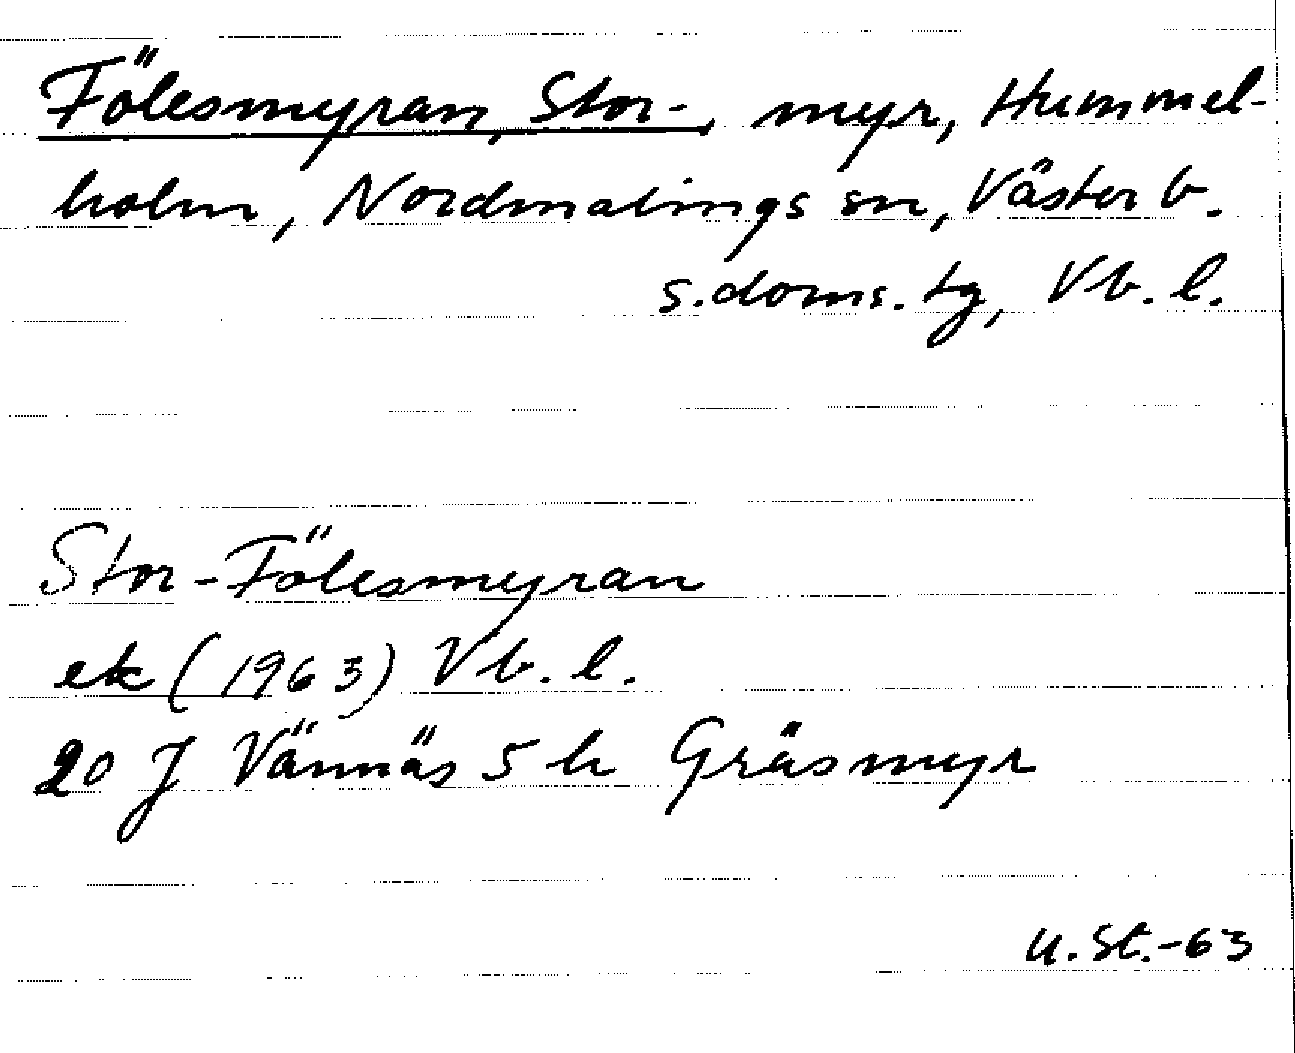 Fölesmyran, Stor-, myr, Hummel-
holm, Nordmalings sn, Västerb.
s.doms.tg, Vb.l.
Stor-Fölesmyran
ek (1963) Vb.l.
20 J Vännäs 5 h Gräsmyr
U.St.-63